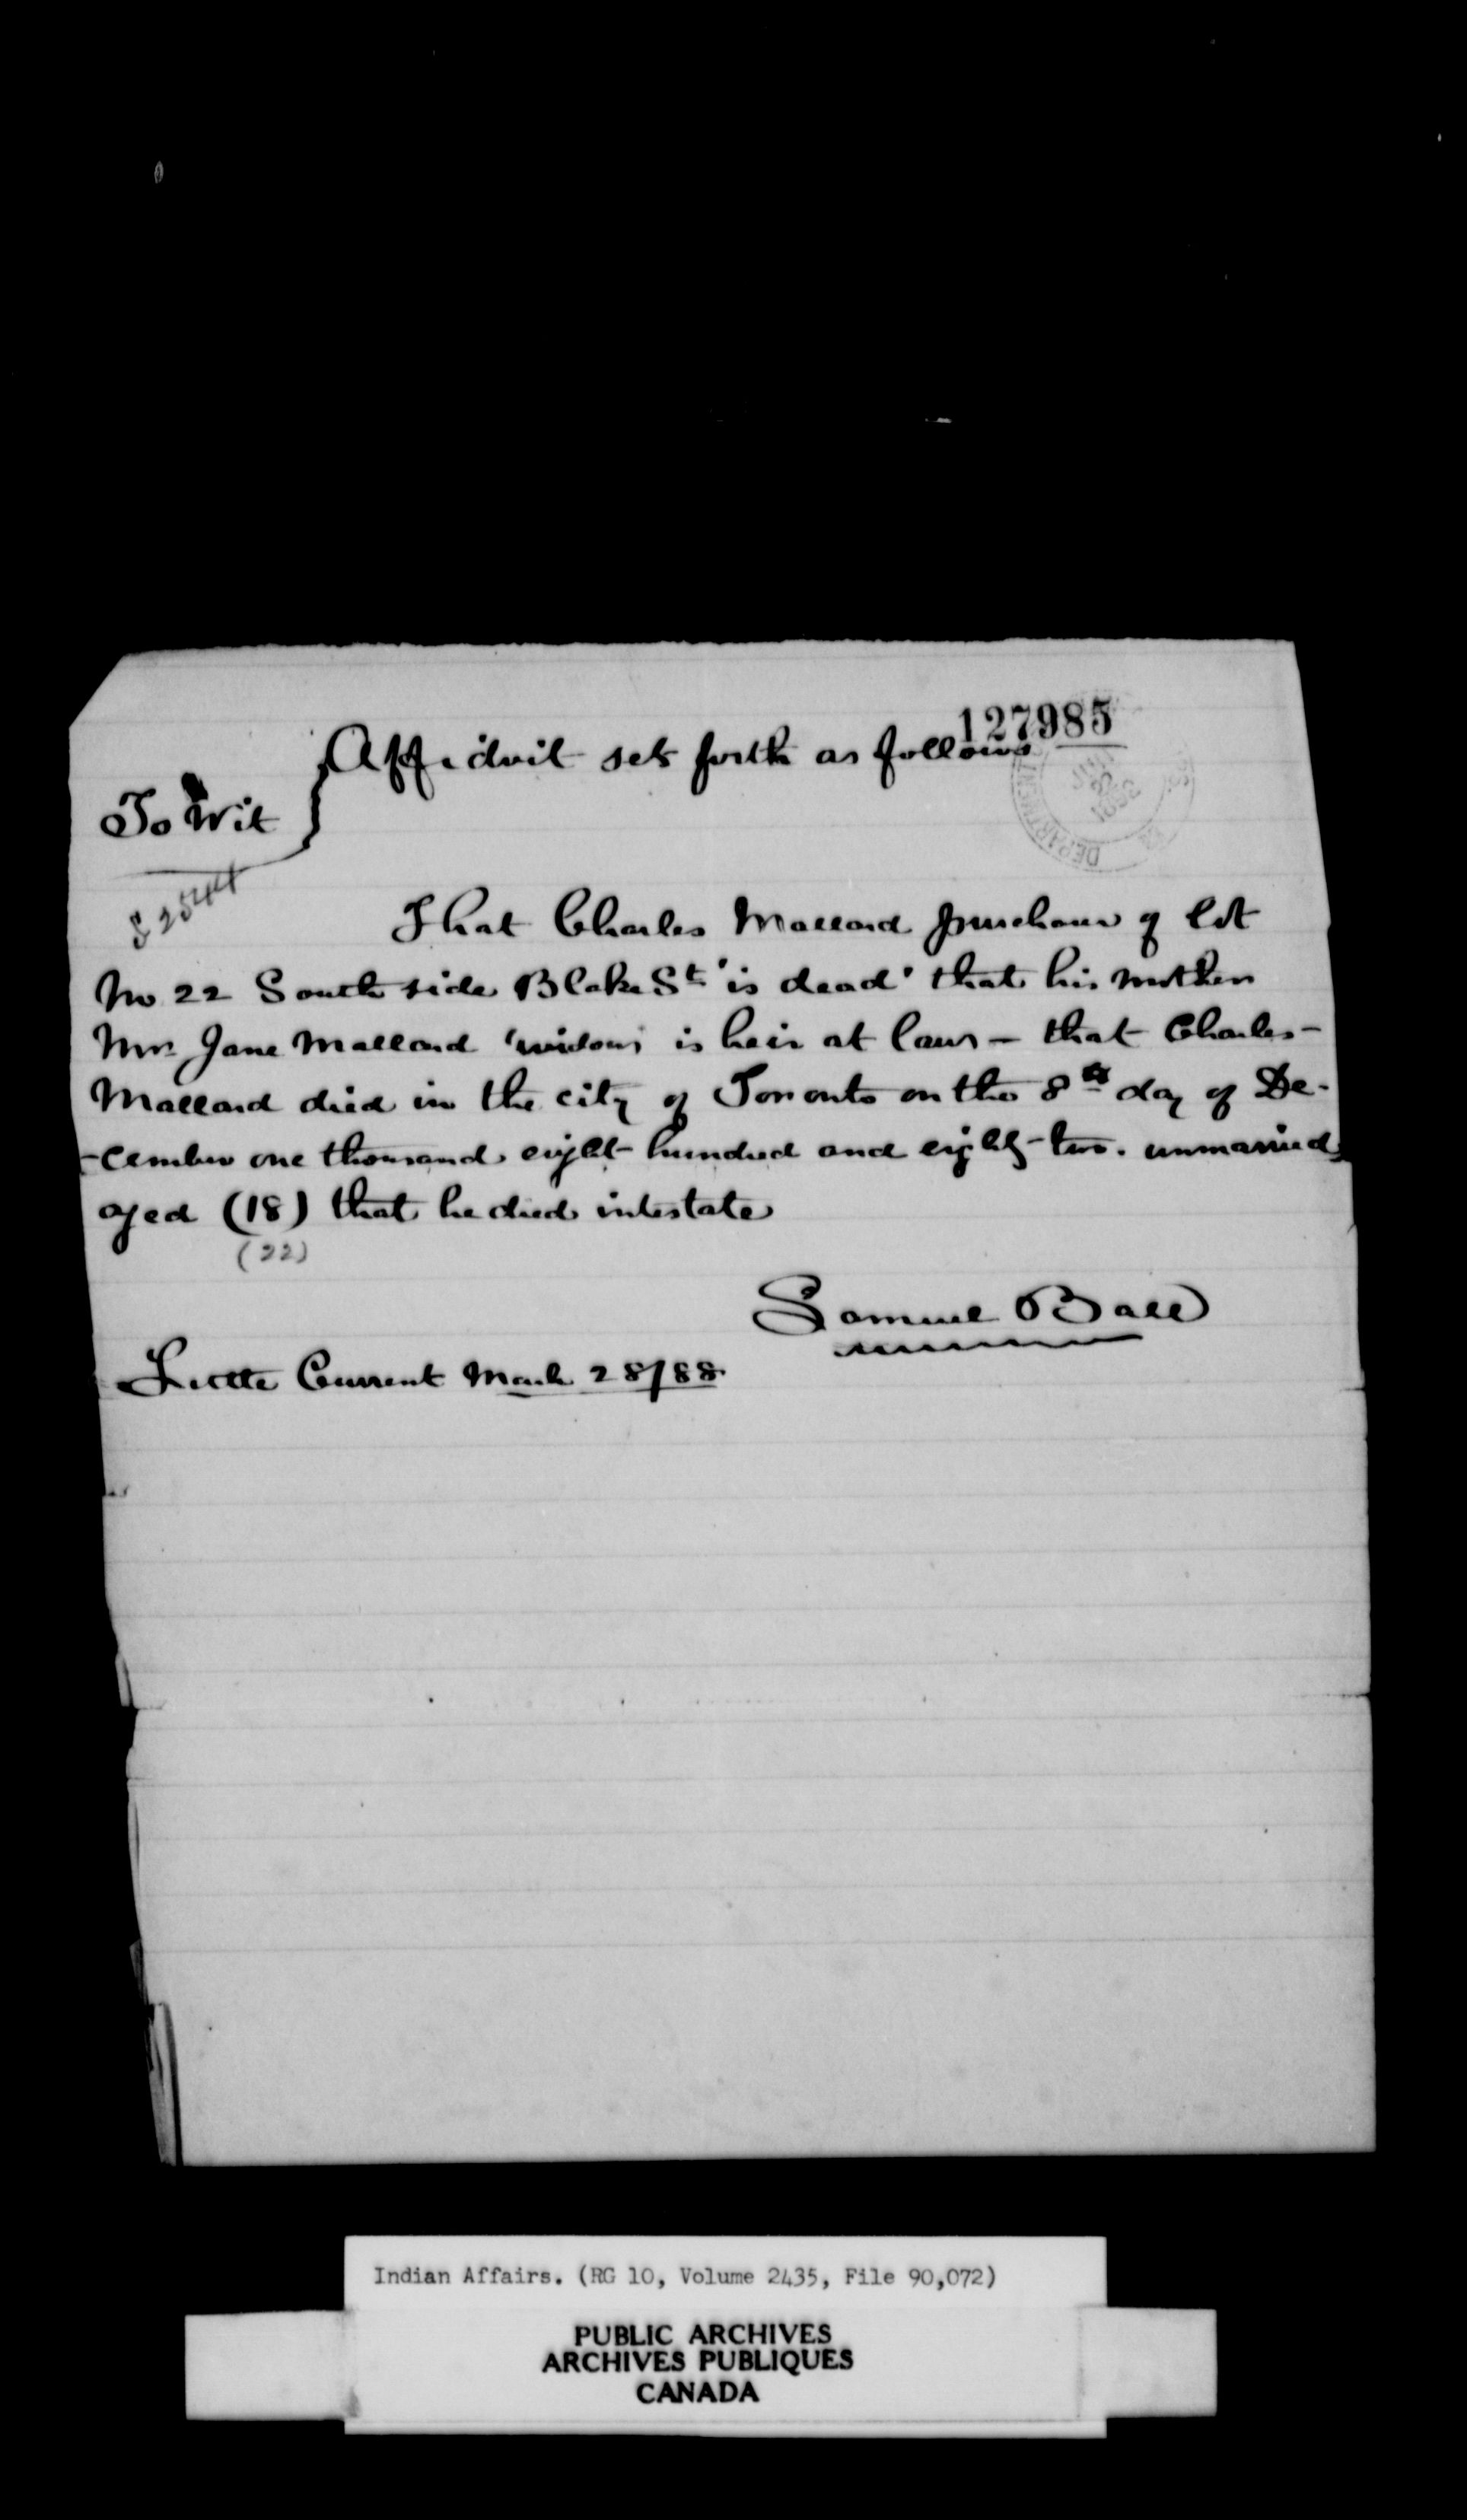 127985
Affidvit sets forth as follows
To Wit
S 2544
That Charles Mallard purchaser of lot
No 22 South side Blake St 'is dead' that his mother
Mrs Jane Mallard 'widow' is heir at law - that Charles -
Mallard died in the city of Toronto on the 8th day of De-
-cember one thousand eight hundred and eighty-two. unmarried
aged (18) that he died intestate
(22)
Samuel Ball
Little Current March 28/88
Indian Affairs. (RG 10, Volume 2435, File 90,072)
PUBLIC ARCHIVES
ARCHIVES PUBLIQUES
CANADA